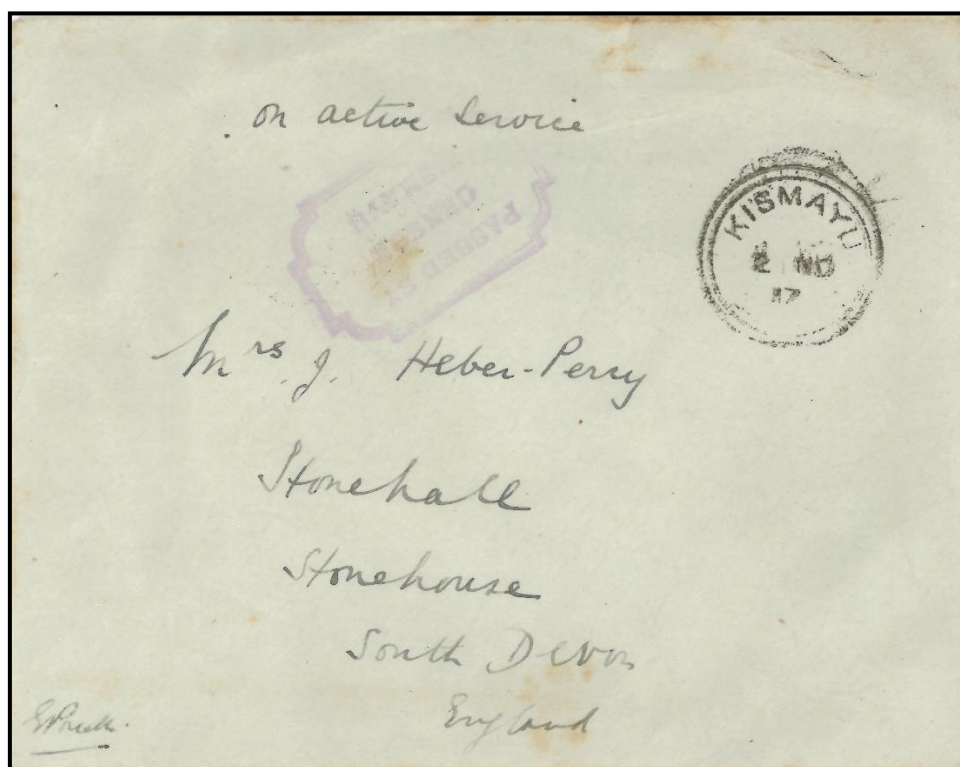 on active service
PASSED
KISMAYU
2 NO
17
Mrs. J. Heber-Percy
Stonehall
Stonehouse
South Devon
England